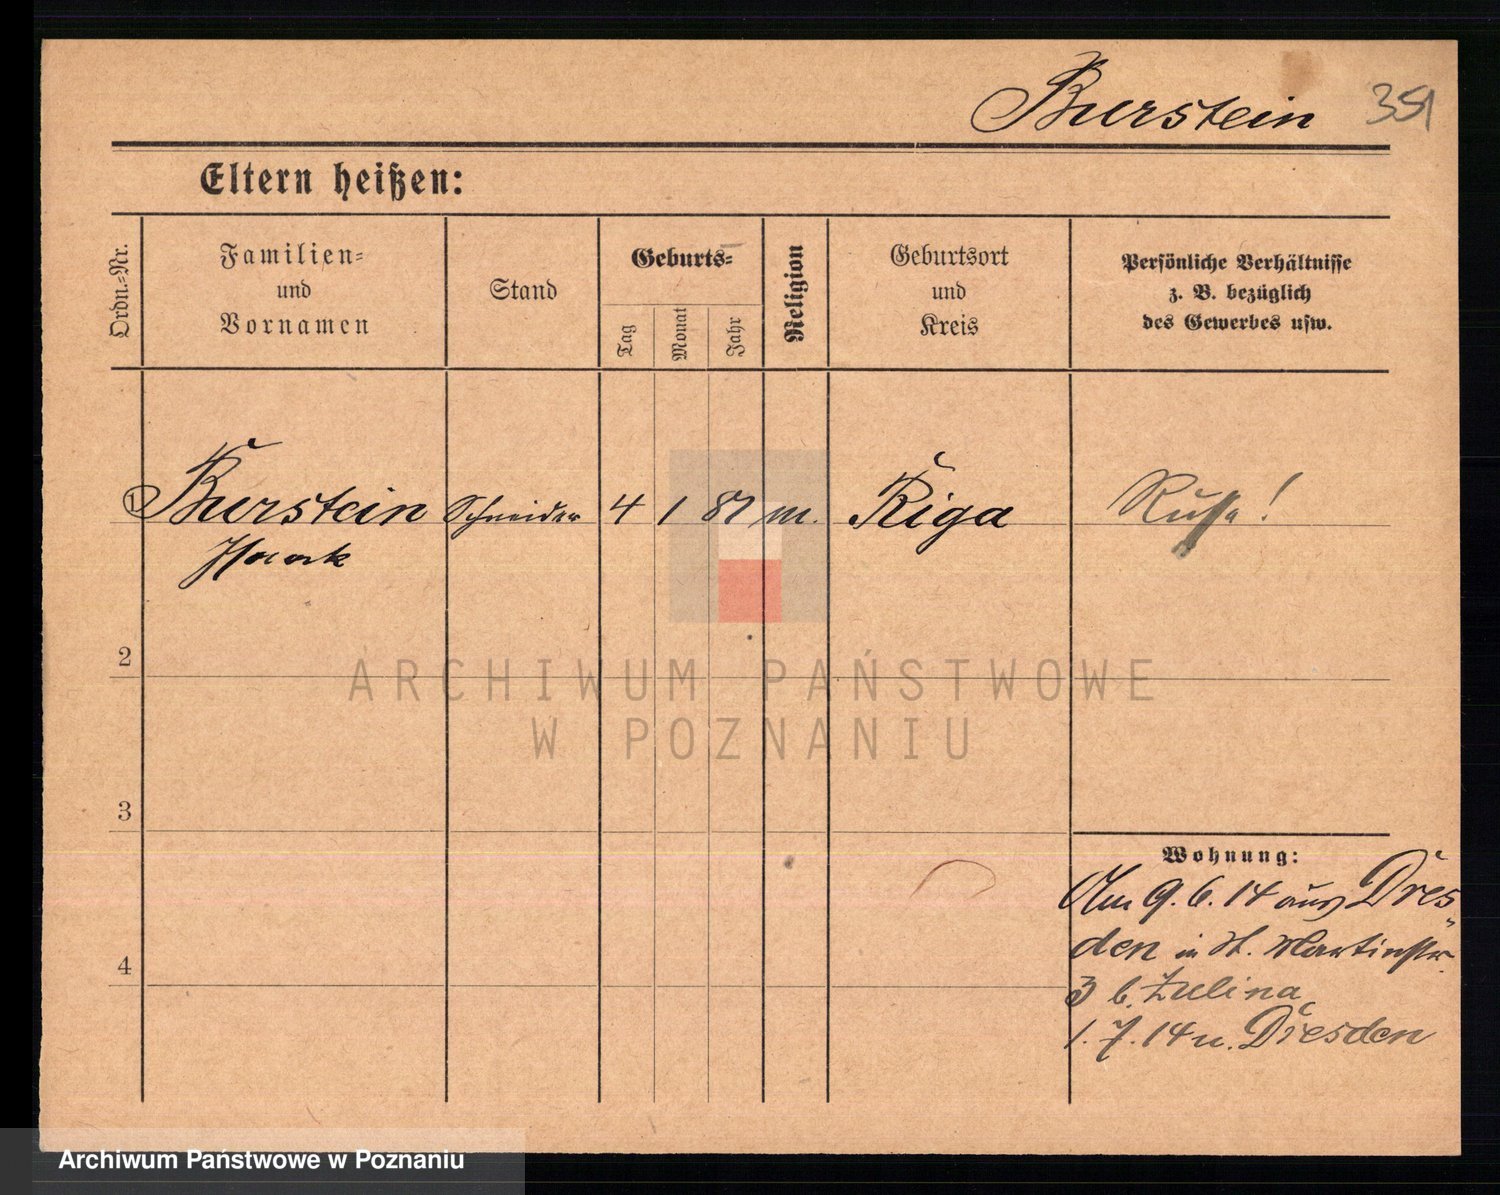 Burstein 351
Eltern heißen:
Ordn.-Nr.
Familien-
und
Vornamen
Stand
Geburts-
Tag
Monat
Jahr
Religion
Geburtsort
und
Kreis
Persönliche Verhältnisse
z. B. bezüglich
des Gewerbes usw.
1 Burstein Schneider 4 1 87 m. Riga Russe!
2
ARCHIWUM PAŃSTWOWE
W POZNANIU
3
Wohnung:
Am 9. 6. 14 aus Dres
den in St. Martinstr.
4
3 b. Zulina
1. 7. 14 n. Dresden
Archiwum Państwowe w Poznaniu